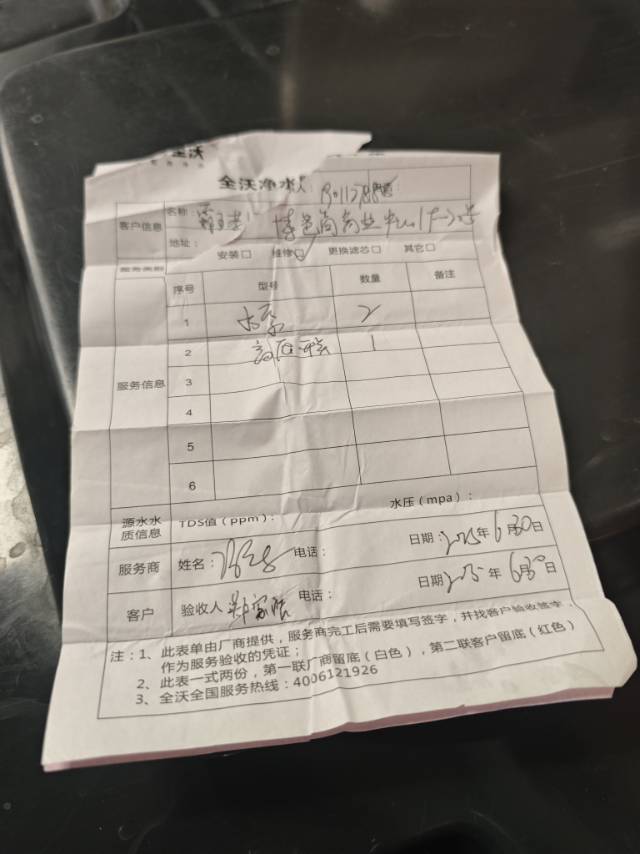 全沃
全沃净水
客户信息
名称：
地址：
安装□ 维修□ 更换滤芯□ 其它□
序号 型号 数量 备注
服务信息
1 水泵 2
2 1
3
4
5
6
源水水质信息 TDS值（ppm）： 水压（mpa）：
服务商 姓名： 电话： 日期：2025年6月30日
客户 验收人 电话： 日期 2025年6月30日
注：1、此表单由厂商提供，服务商完工后需要填写签字，并找客户验收签字，
作为服务验收的凭证；
2、此表一式两份，第一联厂商留底（白色），第二联客户留底（红色）
3、全沃全国服务热线：4006121926